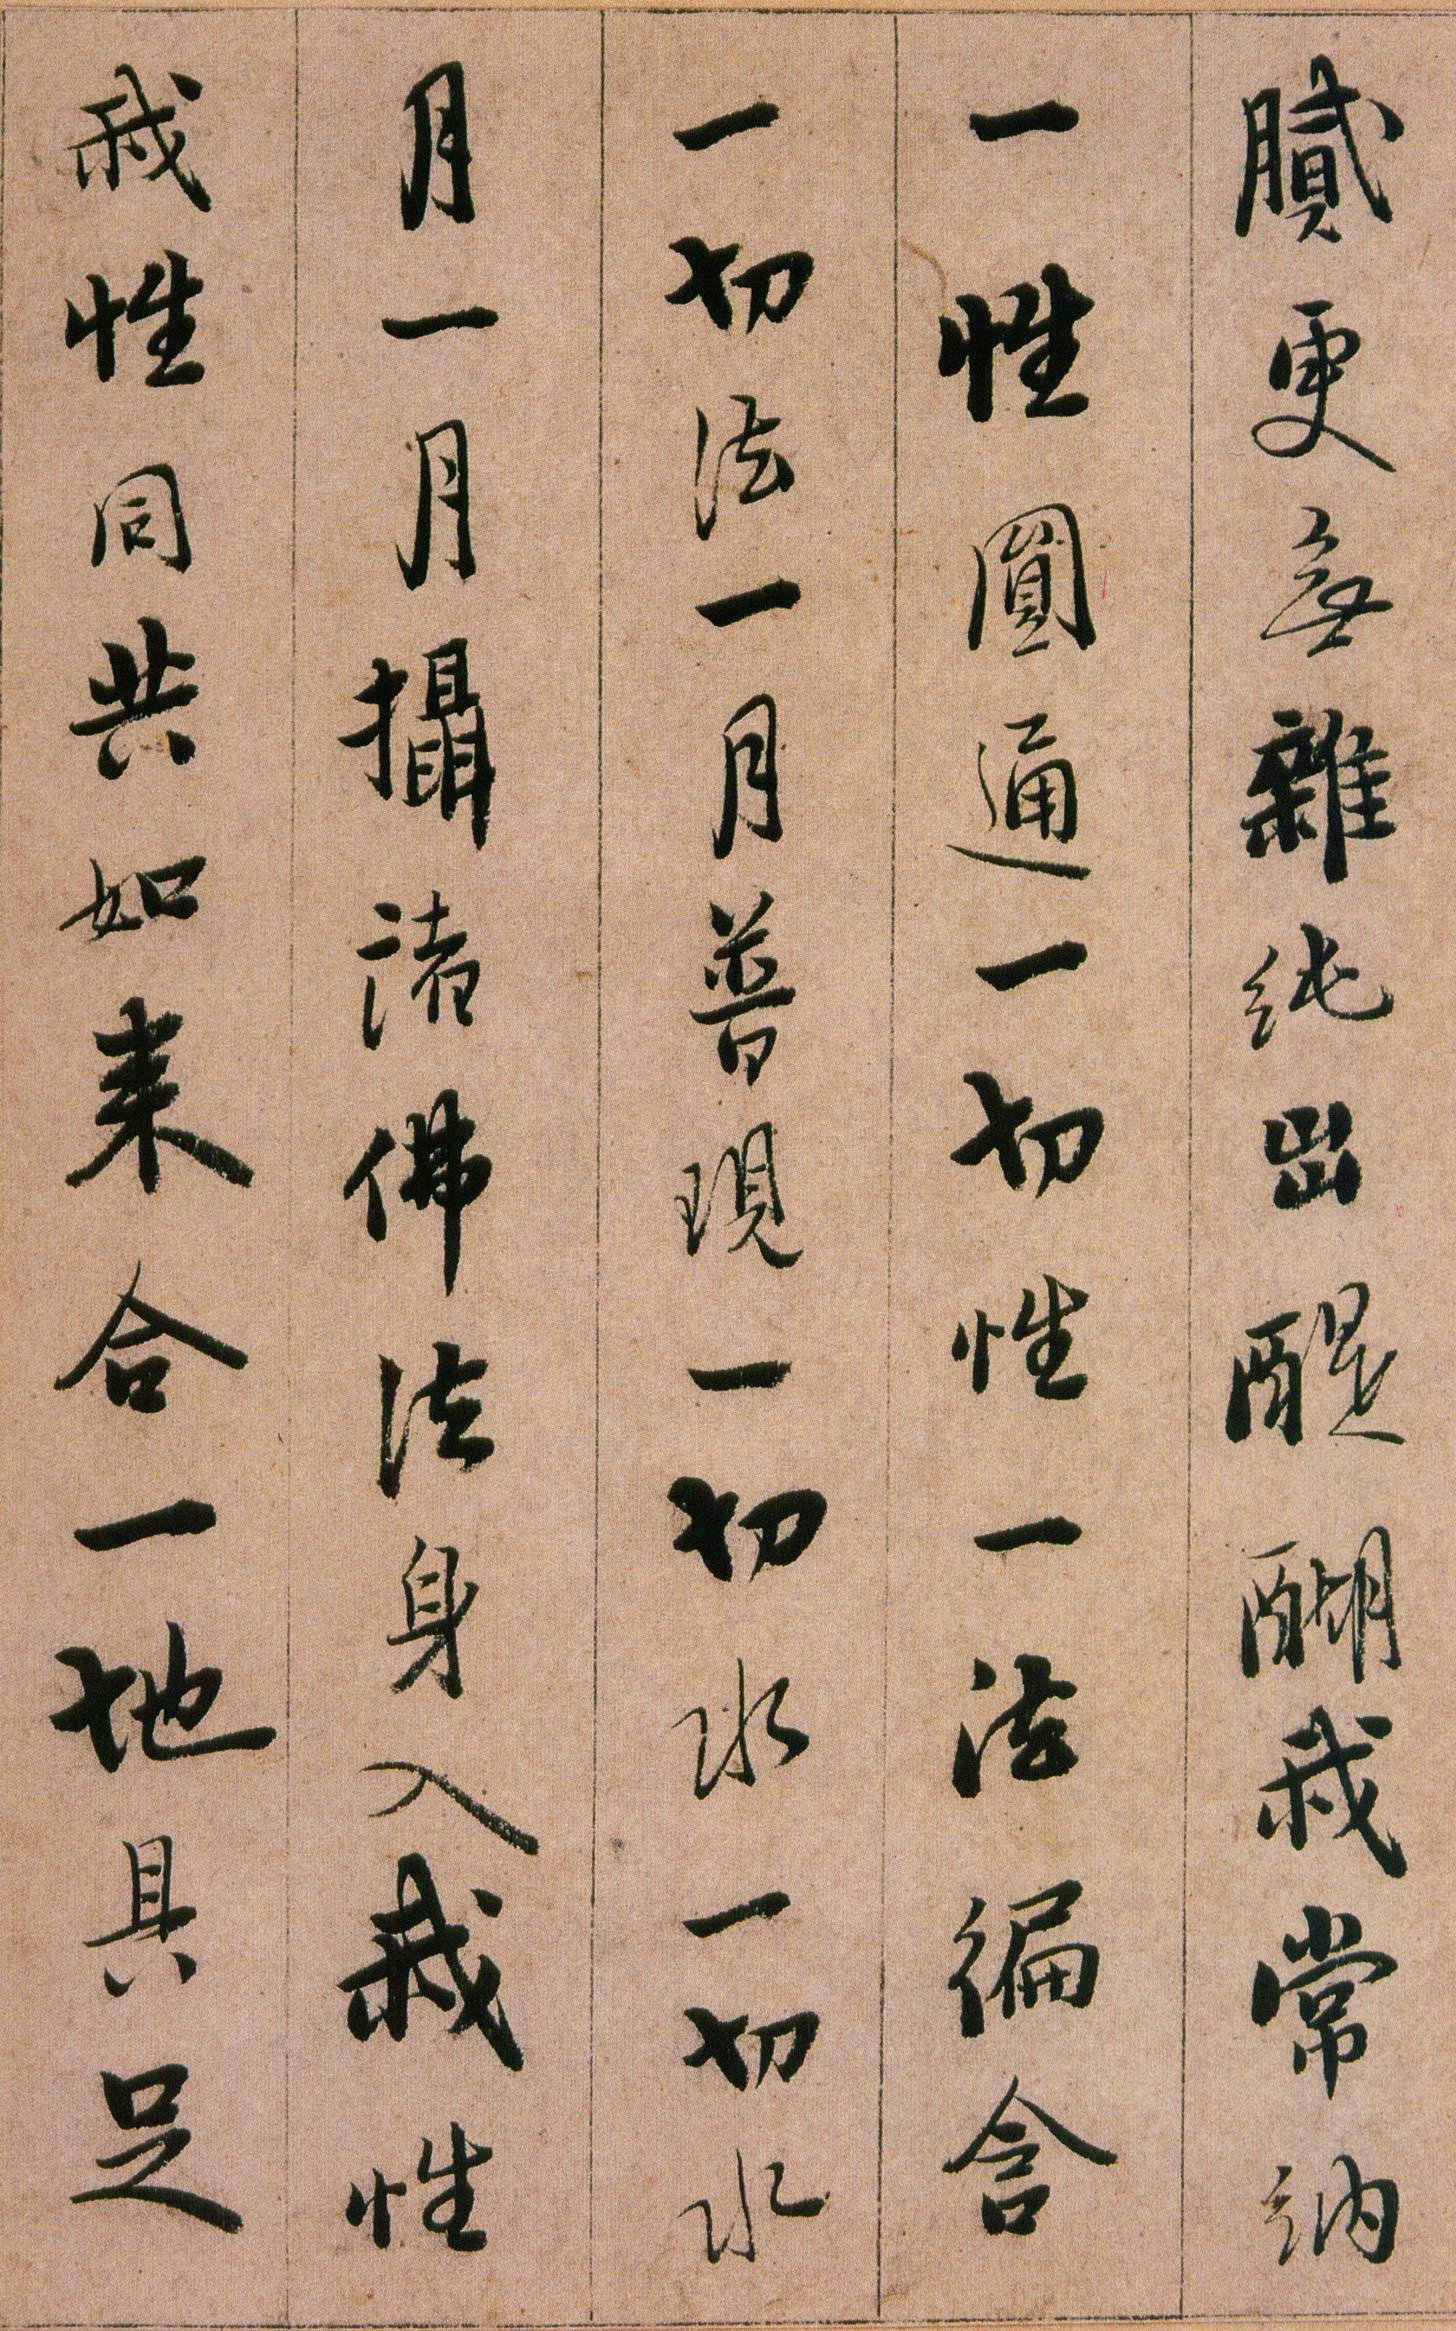 膩更無雜純出醍醐我常納
一性圓通一切性一法徧含
一切法一月普現一切水一切水
月一月攝諸佛法身入我性
我性同共如来合一地具足